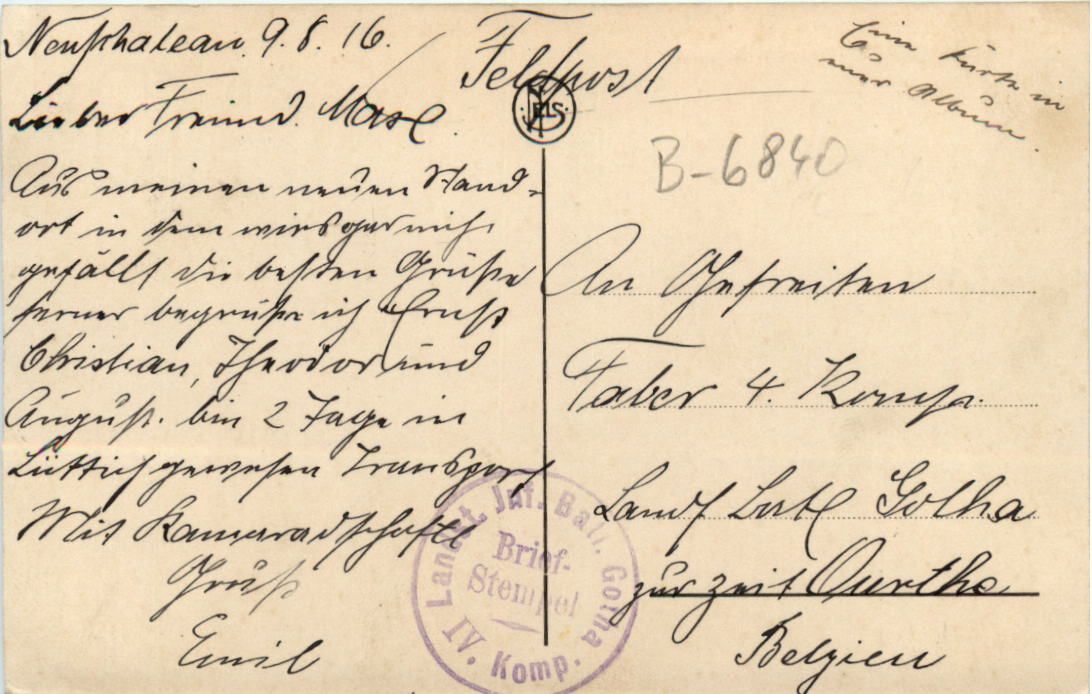 Neufchateau 9.8.16.
Lieber Freund. Max.
Aus meinen neuen Stand-
ort in dem wirs gar nicht
gefällt die besten Grüße
ferner begrüße ich Ernst
Christian, Theodor und
August. bin 2 Tage in
Lüttich gewesen Transport
Mit Kameradschaftl
Gruß
Emil
Feldpost
NELS
Eine Karte in
euer Album
B-6840
An Gefreiten
Faber 4. Komp.
Landst Batl Gotha
zur zeit Ourthe
Belgien
Landst. Inf. Batl. Gotha
Brief-
Stempel
IV. Komp.